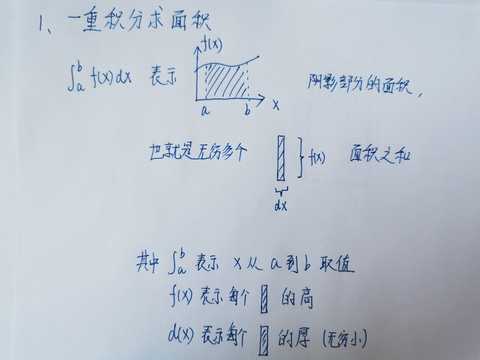 1、一重积分求面积
f(x)
∫ₐᵇ f(x)dx 表示
a b x
阴影部分的面积，
也就是无穷多个 f(x) 面积之和
dx
其中 ∫ₐᵇ 表示 x从a到b取值
f(x) 表示每个 的高
d(x) 表示每个 的厚（无穷小）